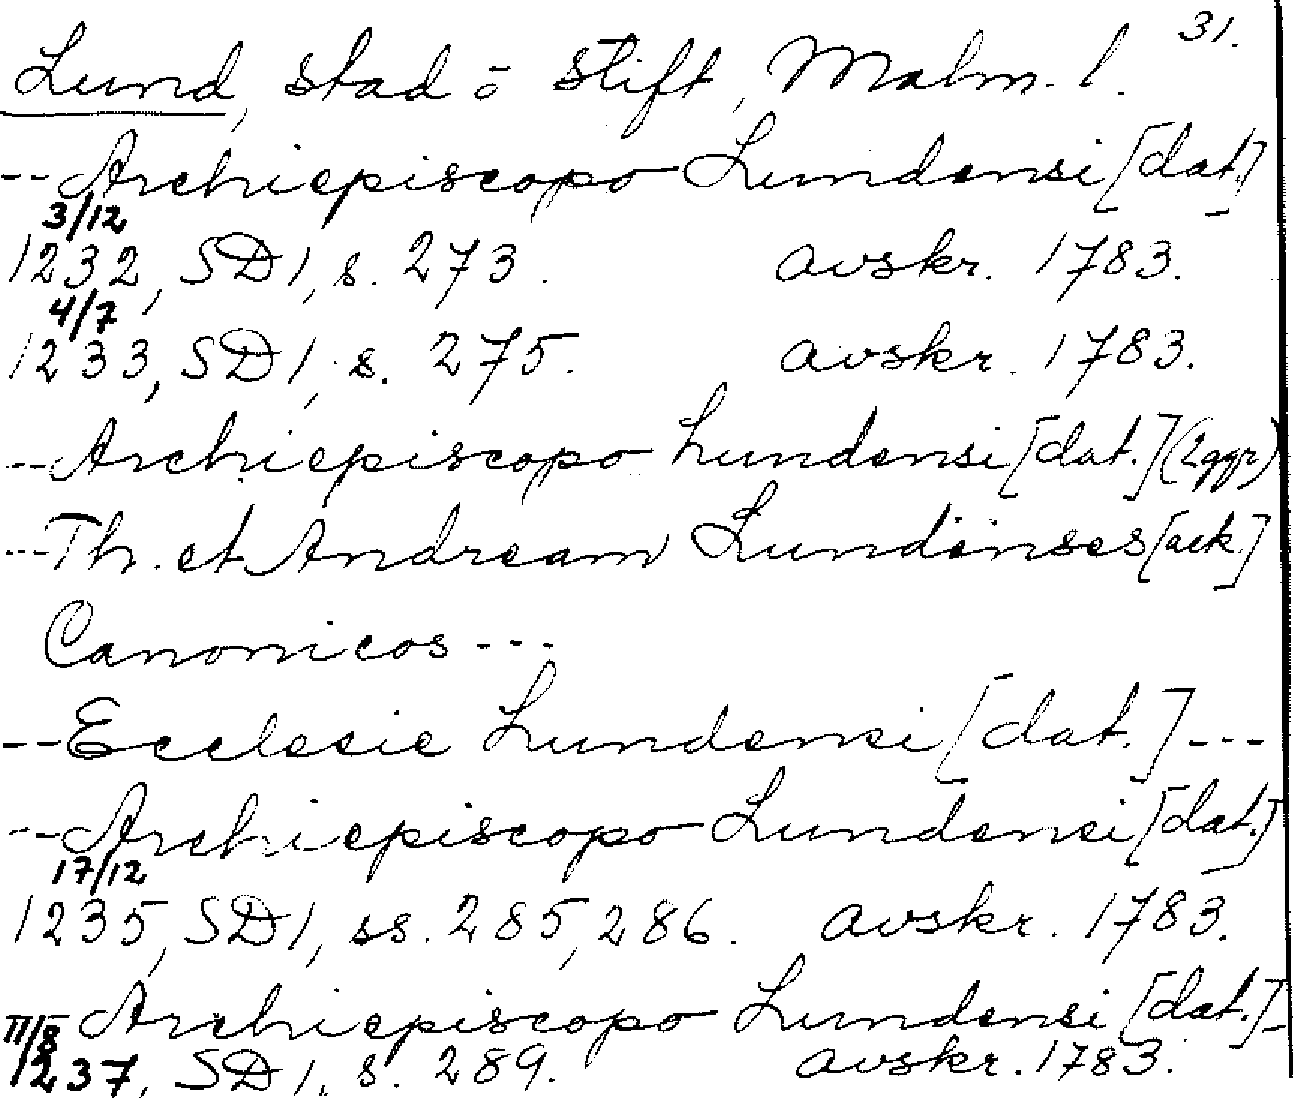 31.
Lund, stad o stift, Malm. l.
-- Archiepiscopo Lundensi [dat.]
3/12
1232, SD 1, s. 273. avskr. 1783.
4/7
1233, SD 1, s. 275. avskr. 1783.
-- Archiepiscopo Lundensi [dat.] (2ggr)
--- Th. et Andream Lundenses [ack.]
Canonicos ---
-- Ecclesie Lundensi [dat.] ---
-- Archiepiscopo Lundensi [dat.]
17/12
1235, SD 1, ss. 285, 286. avskr. 1783.
Archiepiscopo Lundensi [dat.] -
11/8
1237, SD 1, s. 289. avskr. 1783.